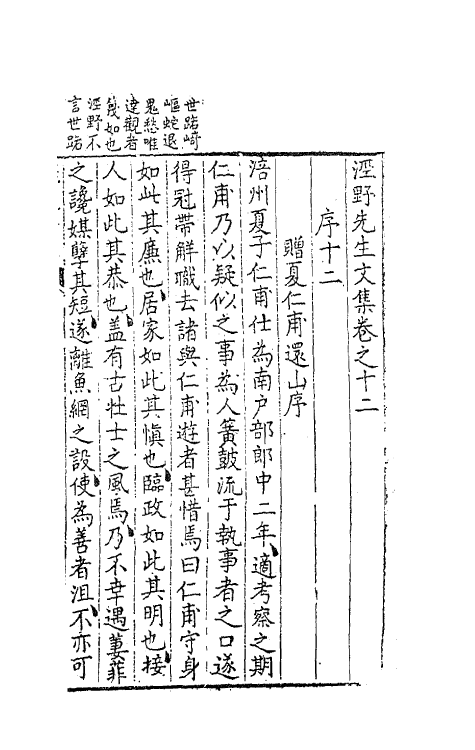 涇野先生文集卷之十二
序十二
贈夏仁甫還山序
涪州夏子仁甫仕為南戶部郎中二年適考察之期
仁甫乃以疑似之事為人簧鼓流于執事者之口遂
得冠帶解職去諸與仁甫遊者甚惜焉曰仁甫守身
如此其廉也居家如此其慎也臨政如此其明也接
人如此其恭也盖有古壮士之風焉乃不幸遇萋菲
之讒媒孽其短遂離魚網之設使為善者沮不亦可
世路崎
嶇蛇退
鬼愁唯
達觀者
筏如也
涇野不
言世路